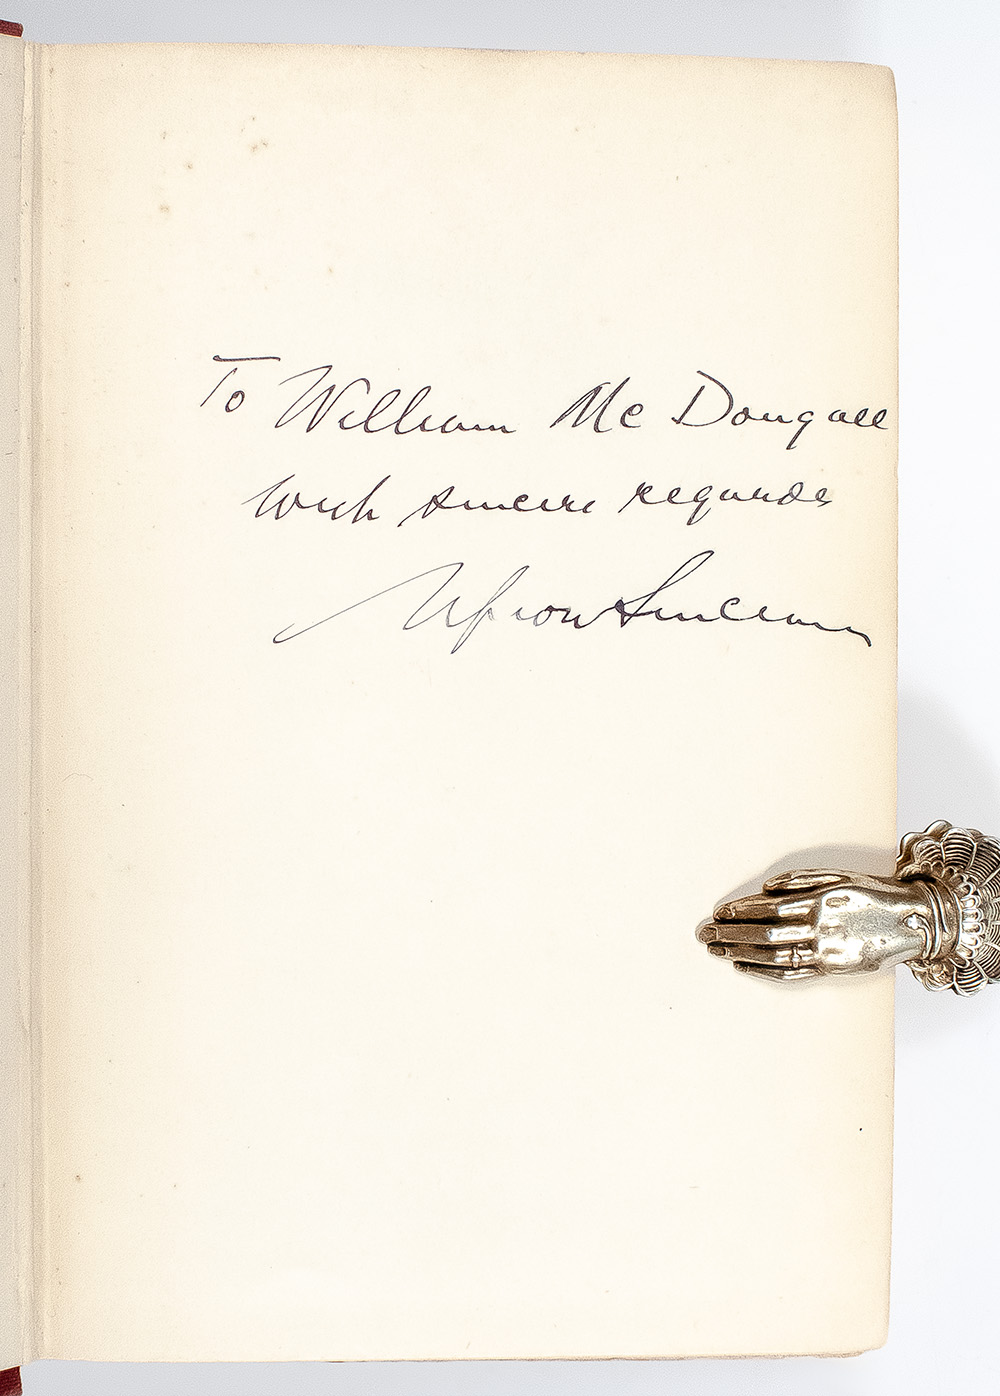 To William Mc Dougall
With sincere regards
Upton Sinclair